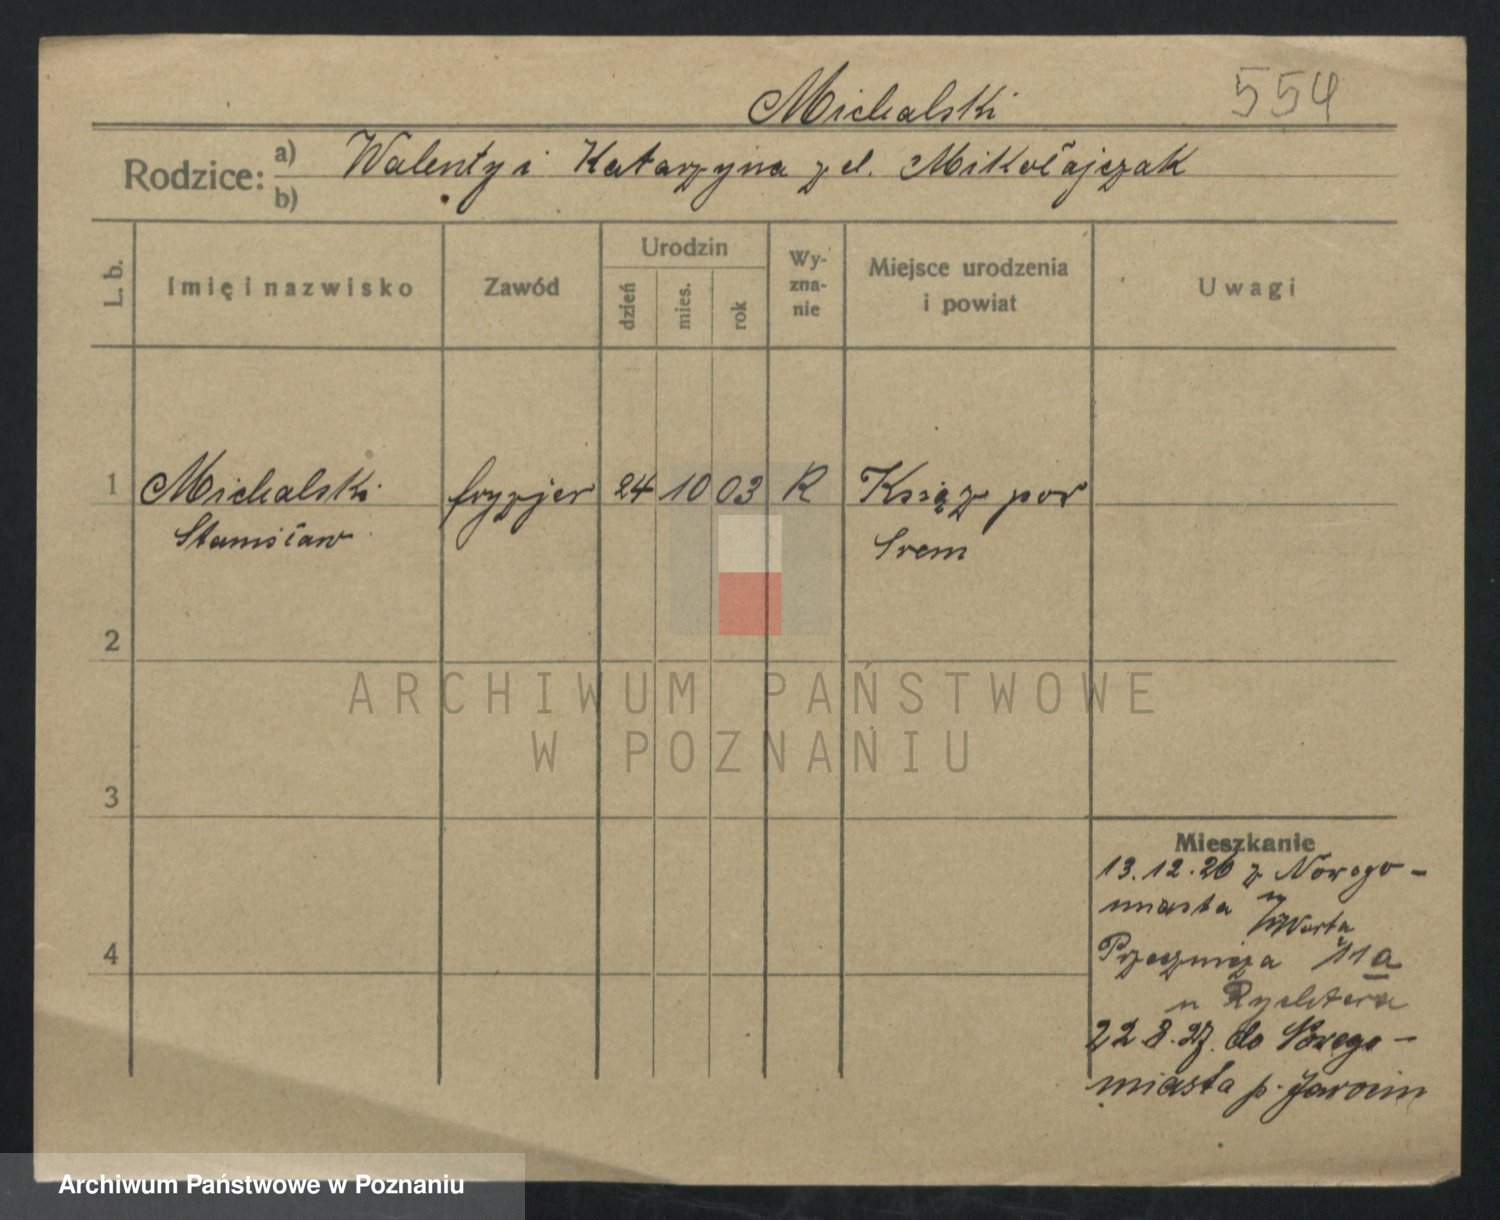 Michalski 554
Rodzice: a) Walenty i Katarzyna z d. Mikołajczak
b)
L. b. Imię i nazwisko Zawód Urodzin dzień mies. rok Wyznanie Miejsce urodzenia i powiat Uwagi
1 Michalski fryzjer 24 10 03 R Książ pow
Stanisław Srem
2
ARCHIWUM PAŃSTWOWE
W POZNANIU
3
Mieszkanie
13.12.26 z Nowego-
miasta n/Wartą
4 11a
u Rychtera
22.8.27. do Nowego-
miasta p. Jarocin
Archiwum Państwowe w Poznaniu